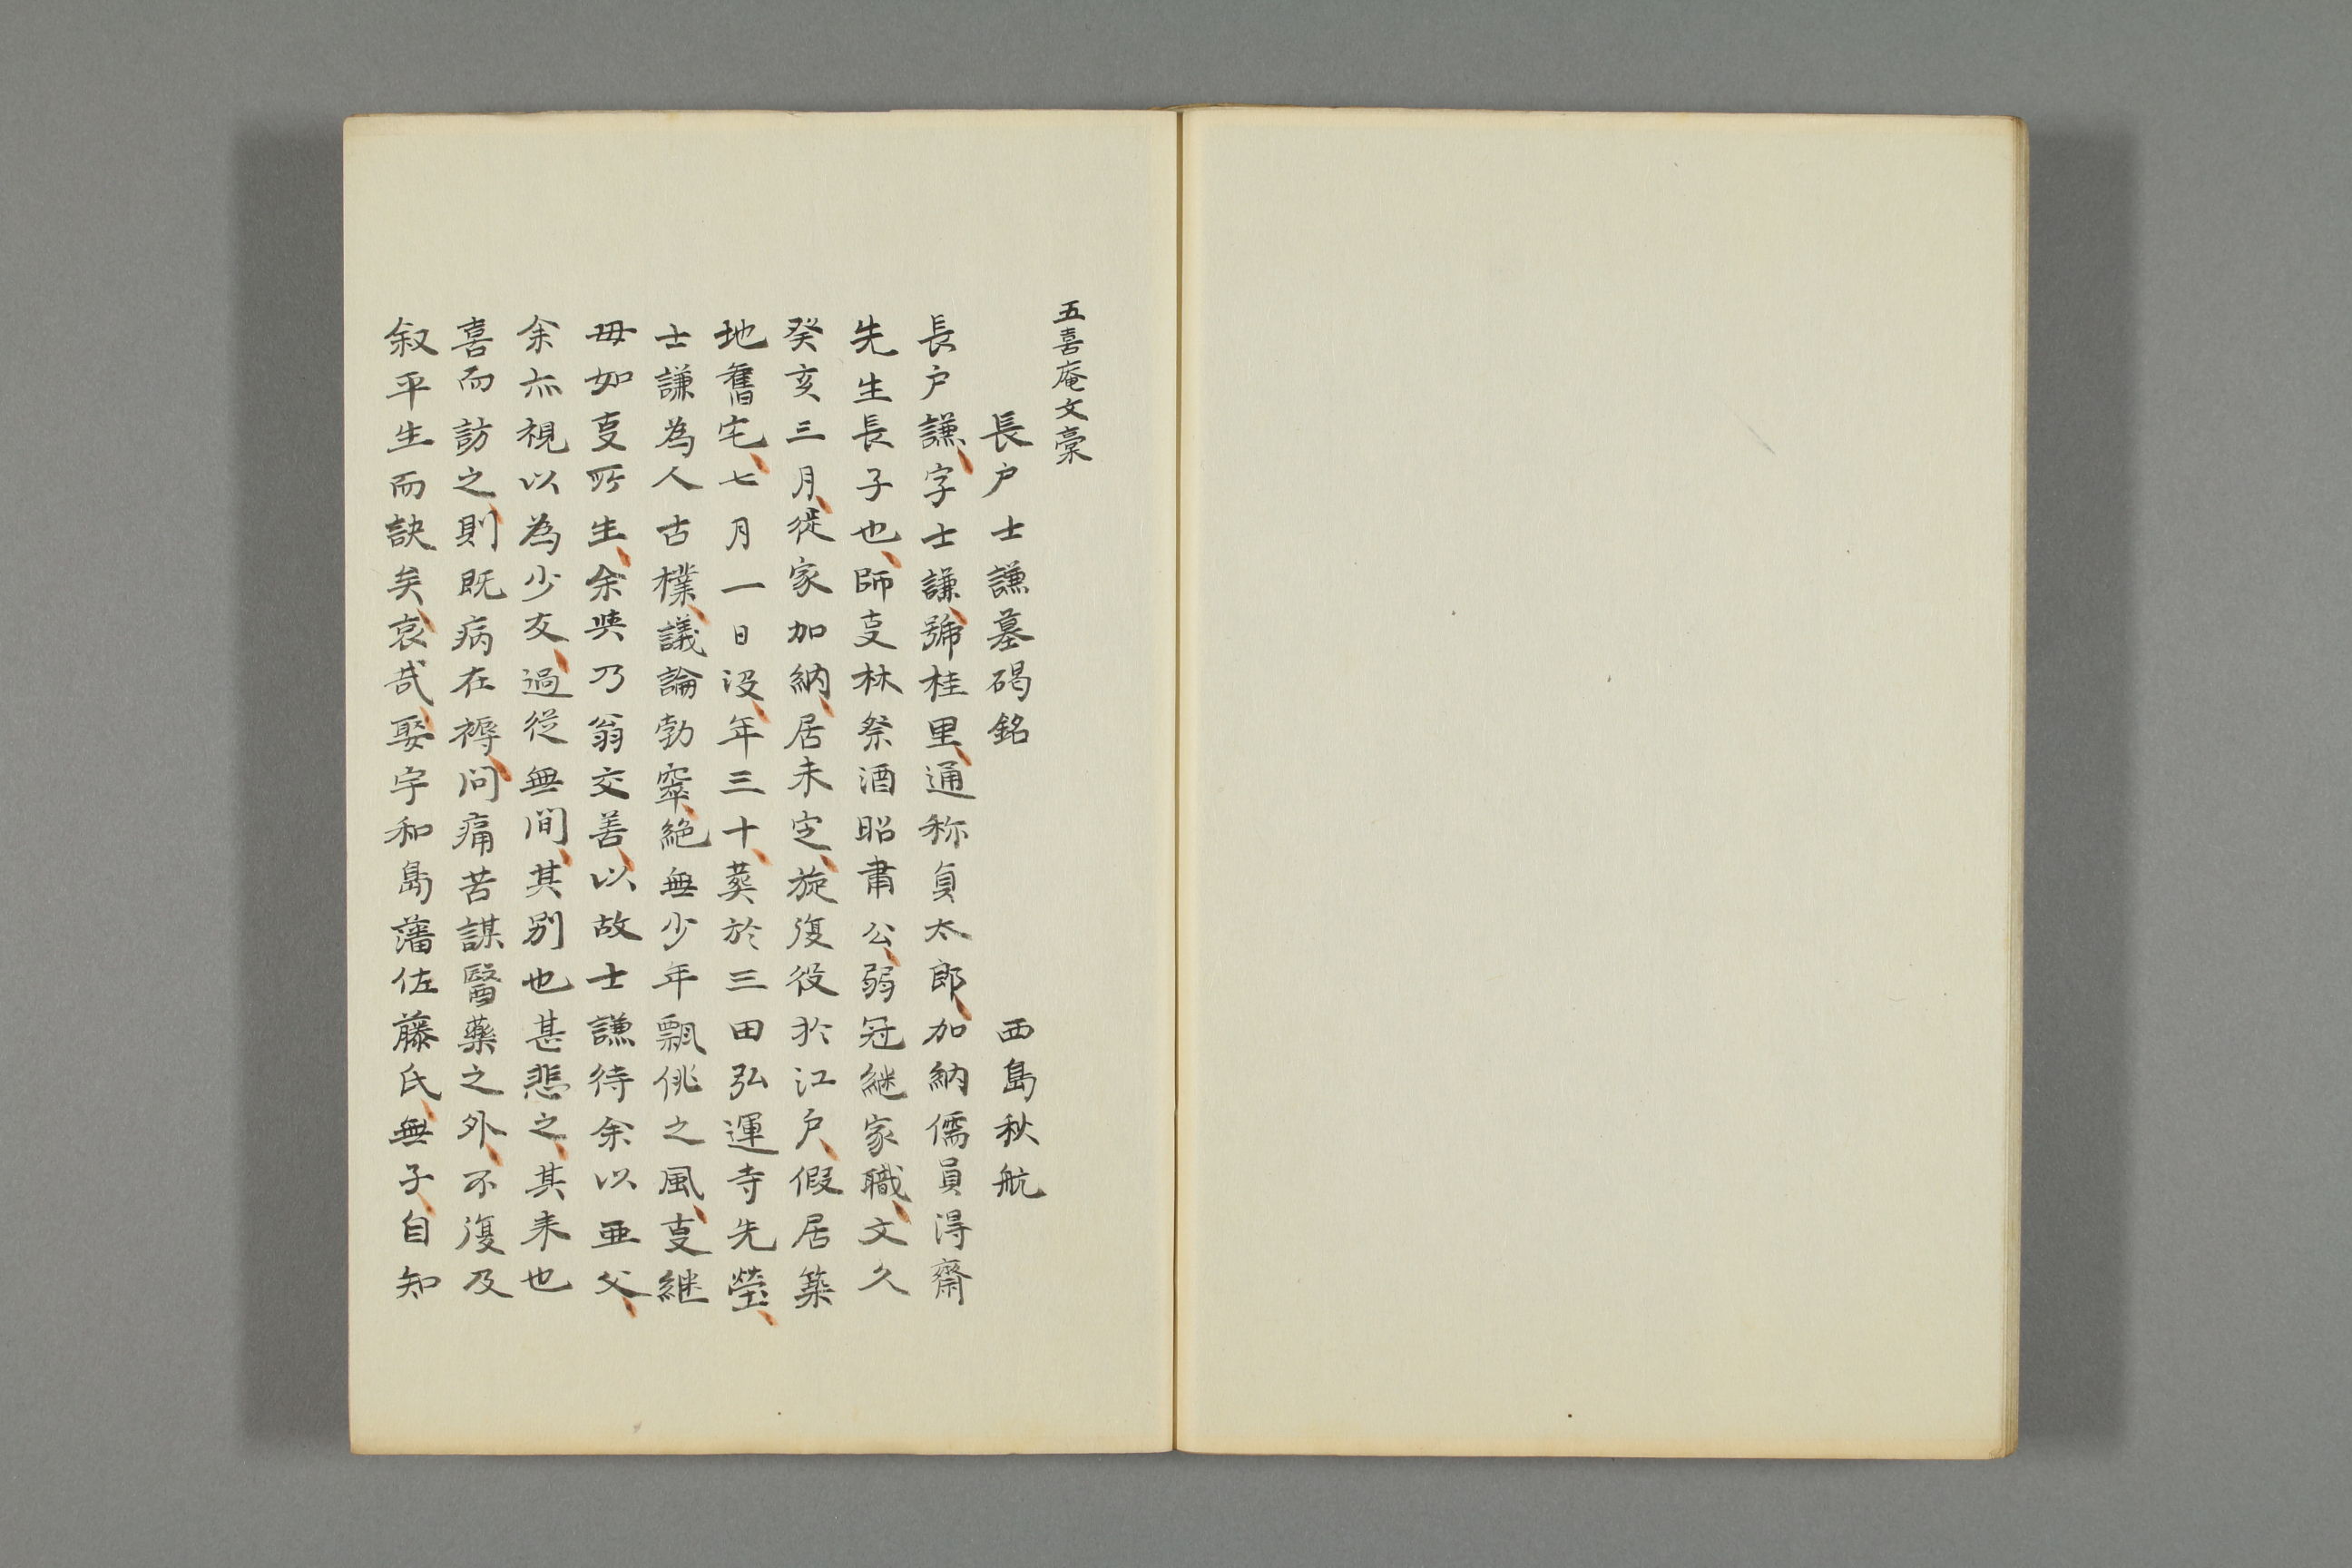 五喜庵文稾
長戸士謙墓碣銘　西島秋航
長戸謙、字士謙、號桂里、通称貞太郎、加納儒員得齋
先生長子也、師叓林祭酒昭肅公、弱冠継家職、文久
癸亥三月、徙家加納、居未定、旋復役於江戸、假居築
地舊宅、七月一日没、年三十、葬於三田弘運寺先塋、
士謙為人古樸、議論勃窣、絶無少年飄佻之風、叓継
母如叓所生、余與乃翁交善、以故士謙待余以亜父、
余亦視以為少友、過從無間、其別也甚悲之、其来也
喜而訪之、則既病在褥、問痛苦謀醫藥之外、不復及
叙平生而訣矣、哀哉、娶宇和島藩佐藤氏、無子、自知